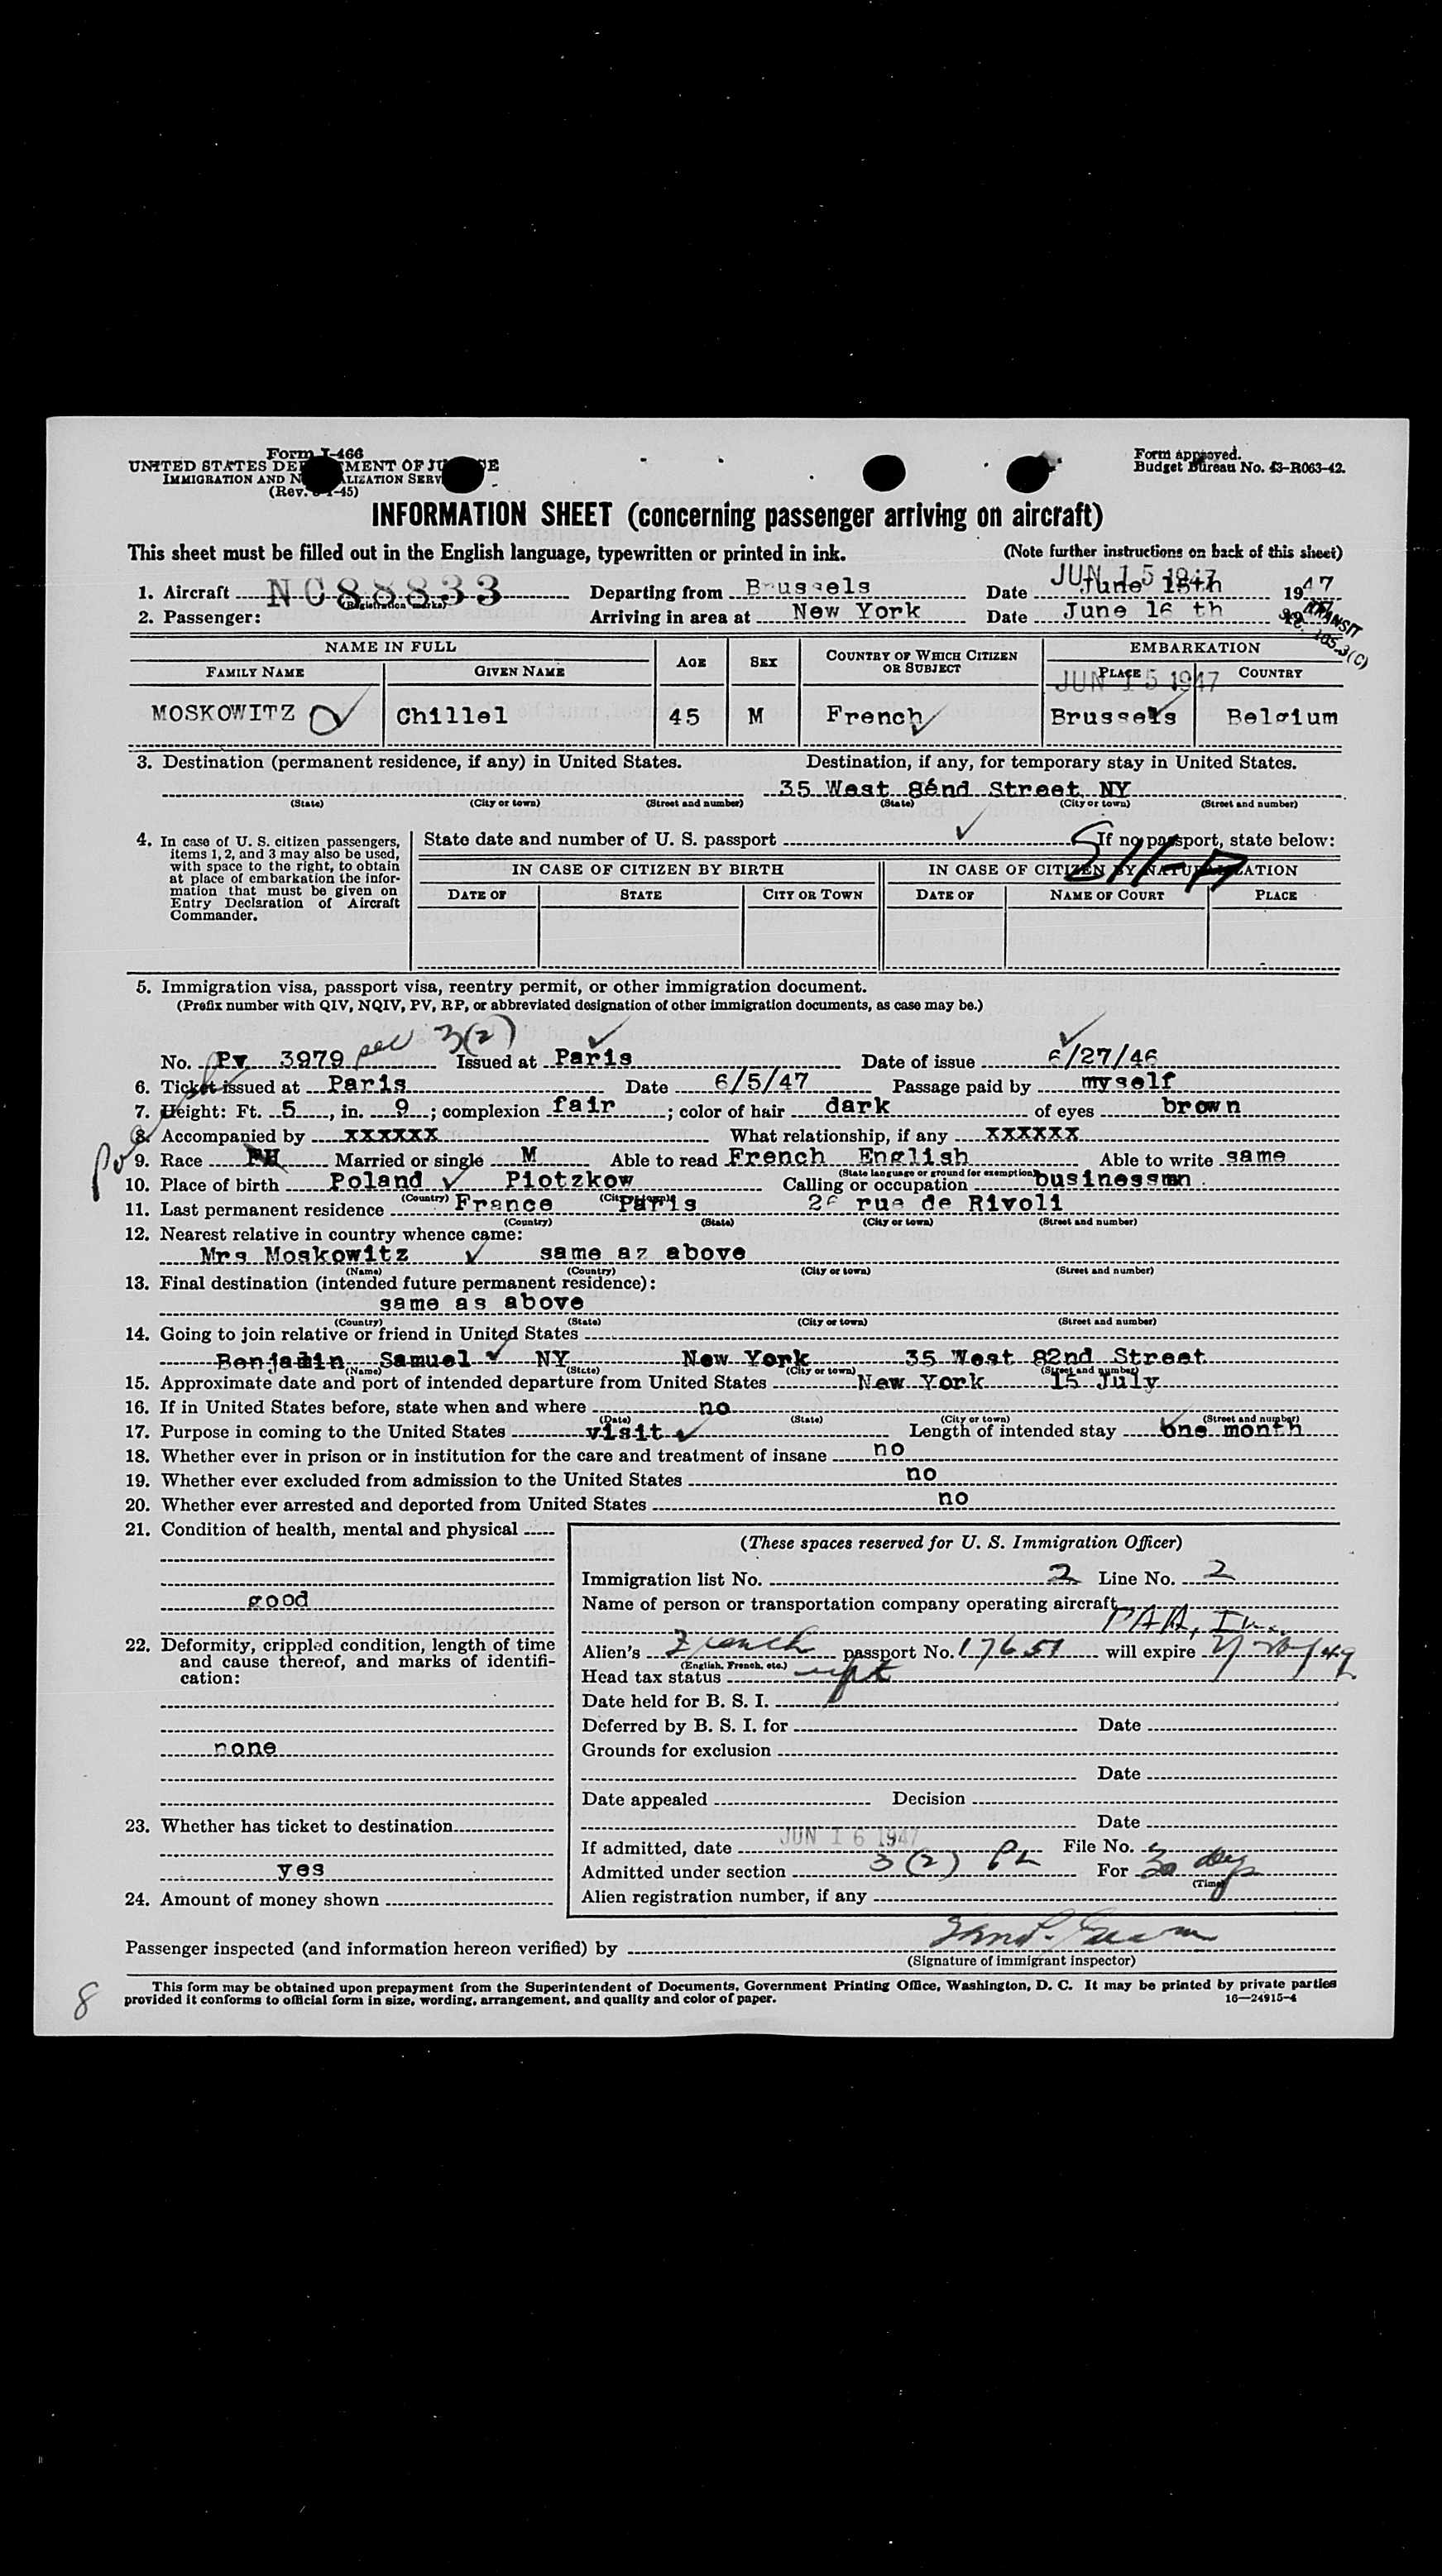 Form I-466
UNITED STATES DEPARTMENT OF JUSTICE
IMMIGRATION AND NATURALIZATION SERVICE
(Rev. -45)
Form approved.
Budget Bureau No. 43-R063-42.
INFORMATION SHEET (concerning passenger arriving on aircraft)
This sheet must be filled out in the English language, typewritten or printed in ink. (Note further instructions on back of this sheet)
1. Aircraft NC88833 (Registration marks) Departing from Brussels Date JUN 15 1947 June 15th 1947
2. Passenger: Arriving in area at New York Date June 16 th
TRANSIT
NAME IN FULL AGE SEX COUNTRY OF WHICH CITIZEN OR SUBJECT EMBARKATION
FAMILY NAME GIVEN NAME PLACE COUNTRY
JUN 15 1947
MOSKOWITZ Chillel 45 M French Brussels Belgium
3. Destination (permanent residence, if any) in United States. Destination, if any, for temporary stay in United States.
35 West 82nd Street NY
(State) (City or town) (Street and number) (State) (City or town) (Street and number)
4. In case of U. S. citizen passengers, items 1, 2, and 3 may also be used, with space to the right, to obtain at place of embarkation the information that must be given on Entry Declaration of Aircraft Commander.
State date and number of U. S. passport If no passport, state below:
IN CASE OF CITIZEN BY BIRTH IN CASE OF CITIZEN BY NATURALIZATION
DATE OF STATE CITY OR TOWN DATE OF NAME OF COURT PLACE
5. Immigration visa, passport visa, reentry permit, or other immigration document.
(Prefix number with QIV, NQIV, PV, RP, or abbreviated designation of other immigration documents, as case may be.)
No. Pv 3979 sec 3(2) Issued at Paris Date of issue 6/27/46
6. Ticket issued at Paris Date 6/5/47 Passage paid by myself
7. Height: Ft. 5, in. 9; complexion fair; color of hair dark of eyes brown
8. Accompanied by xxxxxx What relationship, if any xxxxxx
9. Race Married or single M Able to read French English Able to write same
(State language or ground for exemption)
10. Place of birth Poland Piotzkow Calling or occupation businessmn
(Country) (City or town)
11. Last permanent residence France Paris 26 rue de Rivoli
(Country) (State) (City or town) (Street and number)
12. Nearest relative in country whence came:
Mrs Moskowitz same az above
(Name) (Country) (City or town) (Street and number)
13. Final destination (intended future permanent residence):
same as above
(Country) (State) (City or town) (Street and number)
14. Going to join relative or friend in United States
Benjamin Samuel NY New York 35 West 82nd Street
(Name) (State) (City or town) (Street and number)
15. Approximate date and port of intended departure from United States New York 15 July
16. If in United States before, state when and where no
(Date) (State) (City or town) (Street and number)
17. Purpose in coming to the United States visit Length of intended stay one month
18. Whether ever in prison or in institution for the care and treatment of insane no
19. Whether ever excluded from admission to the United States no
20. Whether ever arrested and deported from United States no
21. Condition of health, mental and physical
good
22. Deformity, crippled condition, length of time and cause thereof, and marks of identification:
none
23. Whether has ticket to destination
yes
24. Amount of money shown
(These spaces reserved for U. S. Immigration Officer)
Immigration list No. 2 Line No. 2
Name of person or transportation company operating aircraft
PAA, Inc.
Alien's French passport No. 17651 will expire
(English, French, etc.)
Head tax status
Date held for B. S. I.
Deferred by B. S. I. for Date
Grounds for exclusion
Date
Date appealed Decision
Date
If admitted, date JUN 16 1947 File No.
Admitted under section 3(2) For 30 days
(Time)
Alien registration number, if any
Passenger inspected (and information hereon verified) by
(Signature of immigrant inspector)
This form may be obtained upon prepayment from the Superintendent of Documents, Government Printing Office, Washington, D. C. It may be printed by private parties
provided it conforms to official form in size, wording, arrangement, and quality and color of paper. 16—24915-4
8